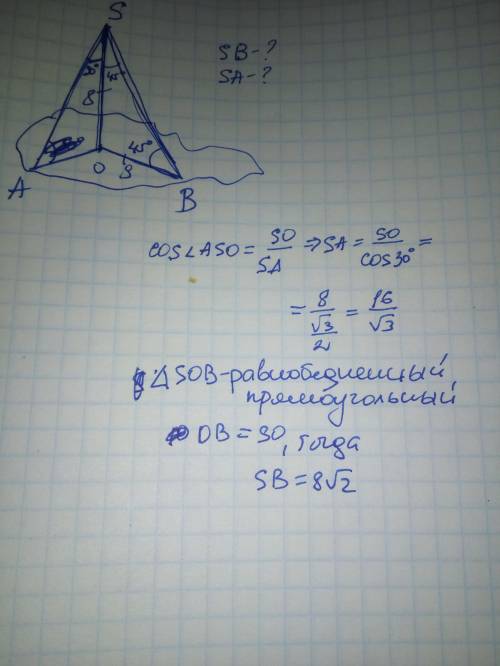 S
SB-?
SA-?
30°
45°
8
45°
O
8
A
B
cos∠ASO = SO/SA ⇒ SA = SO/cos30° =
= 8/(√3/2) = 16/√3
△SOB-равнобедренный,
прямоугольный
OB = SO, тогда
SB = 8√2